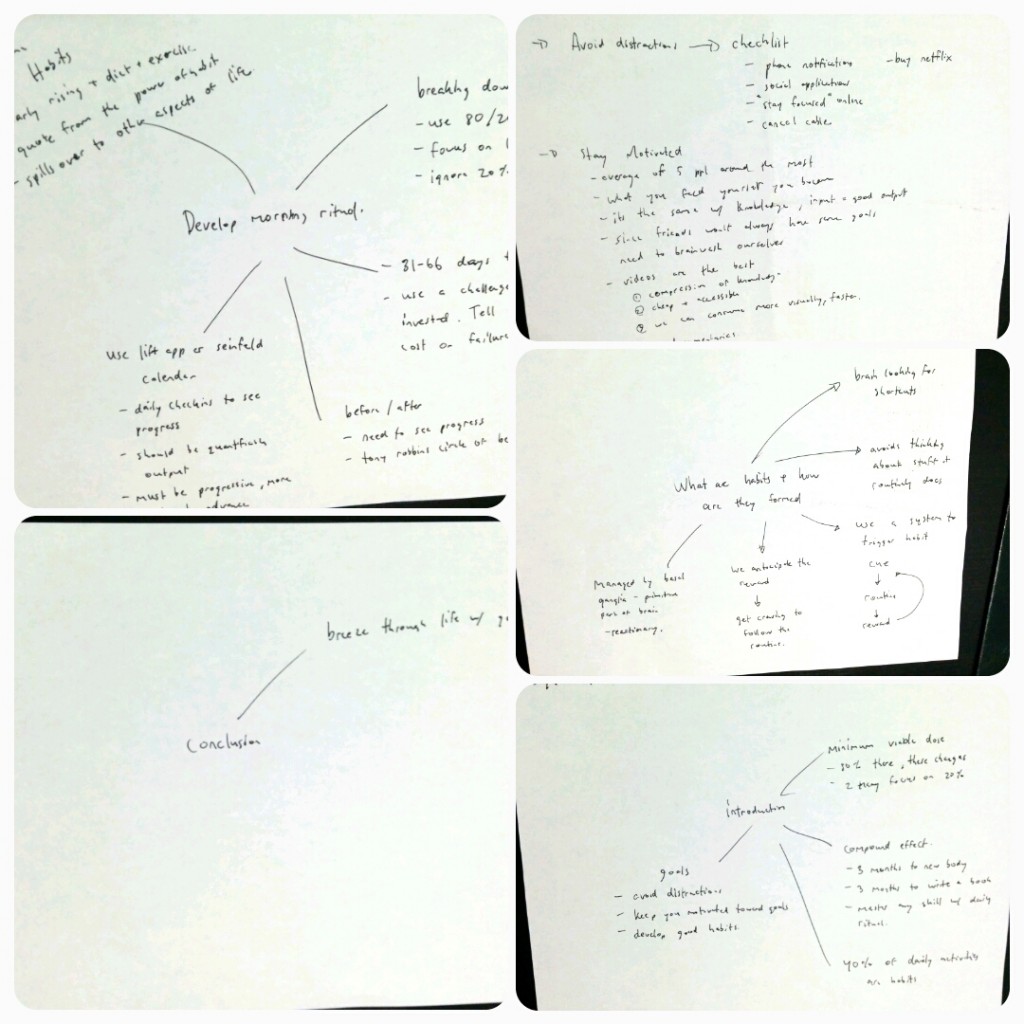 Habits
arly rising + diet + exercise
quote from the power of habit
- spills over to other aspects of life
breaking dow
- use 80/2
- focus on
- ignore 20%
Develop morning ritual.
- 31-66 days
- use a challeng
invested. Tell
cost on failur
use lift app or seinfeld
calendar
- daily checkins to see
progress
- should be
output
- must be progressive, more
advance
before / after
- need to see progress
- tony robbins circle of be
→ Avoid distractions → checklist
- phone notifications
- social applications
- "stay focused" online
- cancel cable
- buy netflix
→ Stay Motivated
- average of 5 ppl around the most
- what you feed yourself you become
- its the same w/ knowledge, input = good output
- since friends won't always have same goals
need to brainwash ourselves
- videos are the best
① compression of knowledge.
② cheap + accessible
③ we can consume more visually, faster.
brain looking for
shortcuts
avoids thinking
about stuff it
routinely does
What are habits + how
are they formed
use a system to
trigger habit
cue
↓
routine
↓
reward
We anticipate the
reward
↓
get craving to
follow the
routine.
Managed by basal
ganglia - primitive
part of brain
- reactionary.
breeze through life w/ g
Conclusion
Minimum viable dose
- 80% there, these changes
- focus on 20%
introduction
compound effect.
- 3 months to new body
- 3 months to write a book
- master any skill w/ daily
ritual.
goals
- avoid distractions
- keep you motivated toward goals
- develop good habits
40% of daily activities
are habits